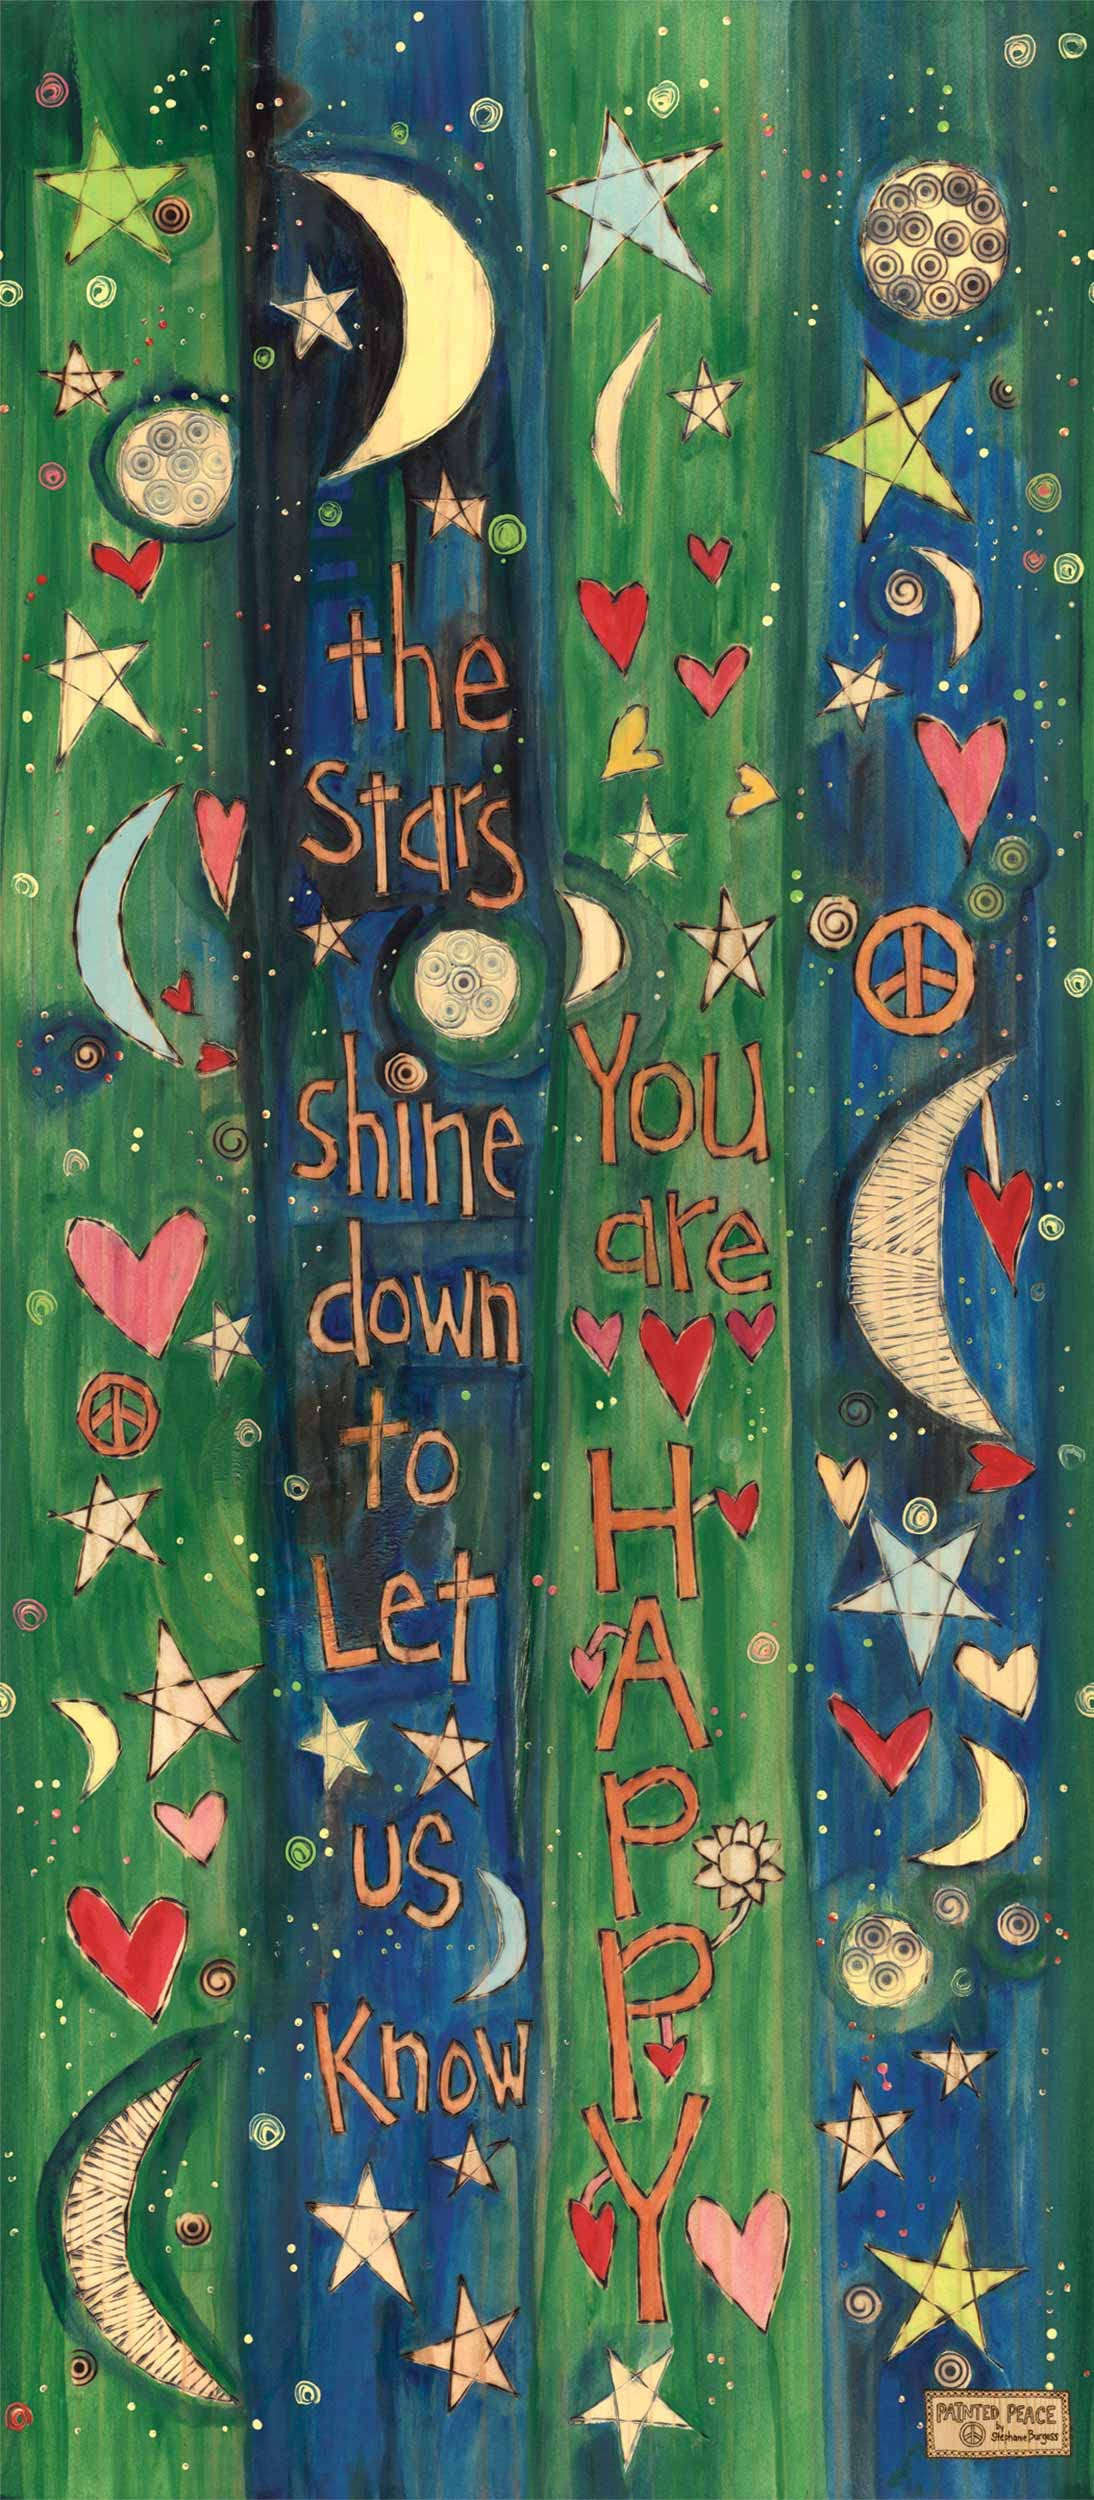 the
Stars
shine
down
to
Let
us
Know
You
are
HAPPY
PAINTED PEACE
by
Stephanie Burgess